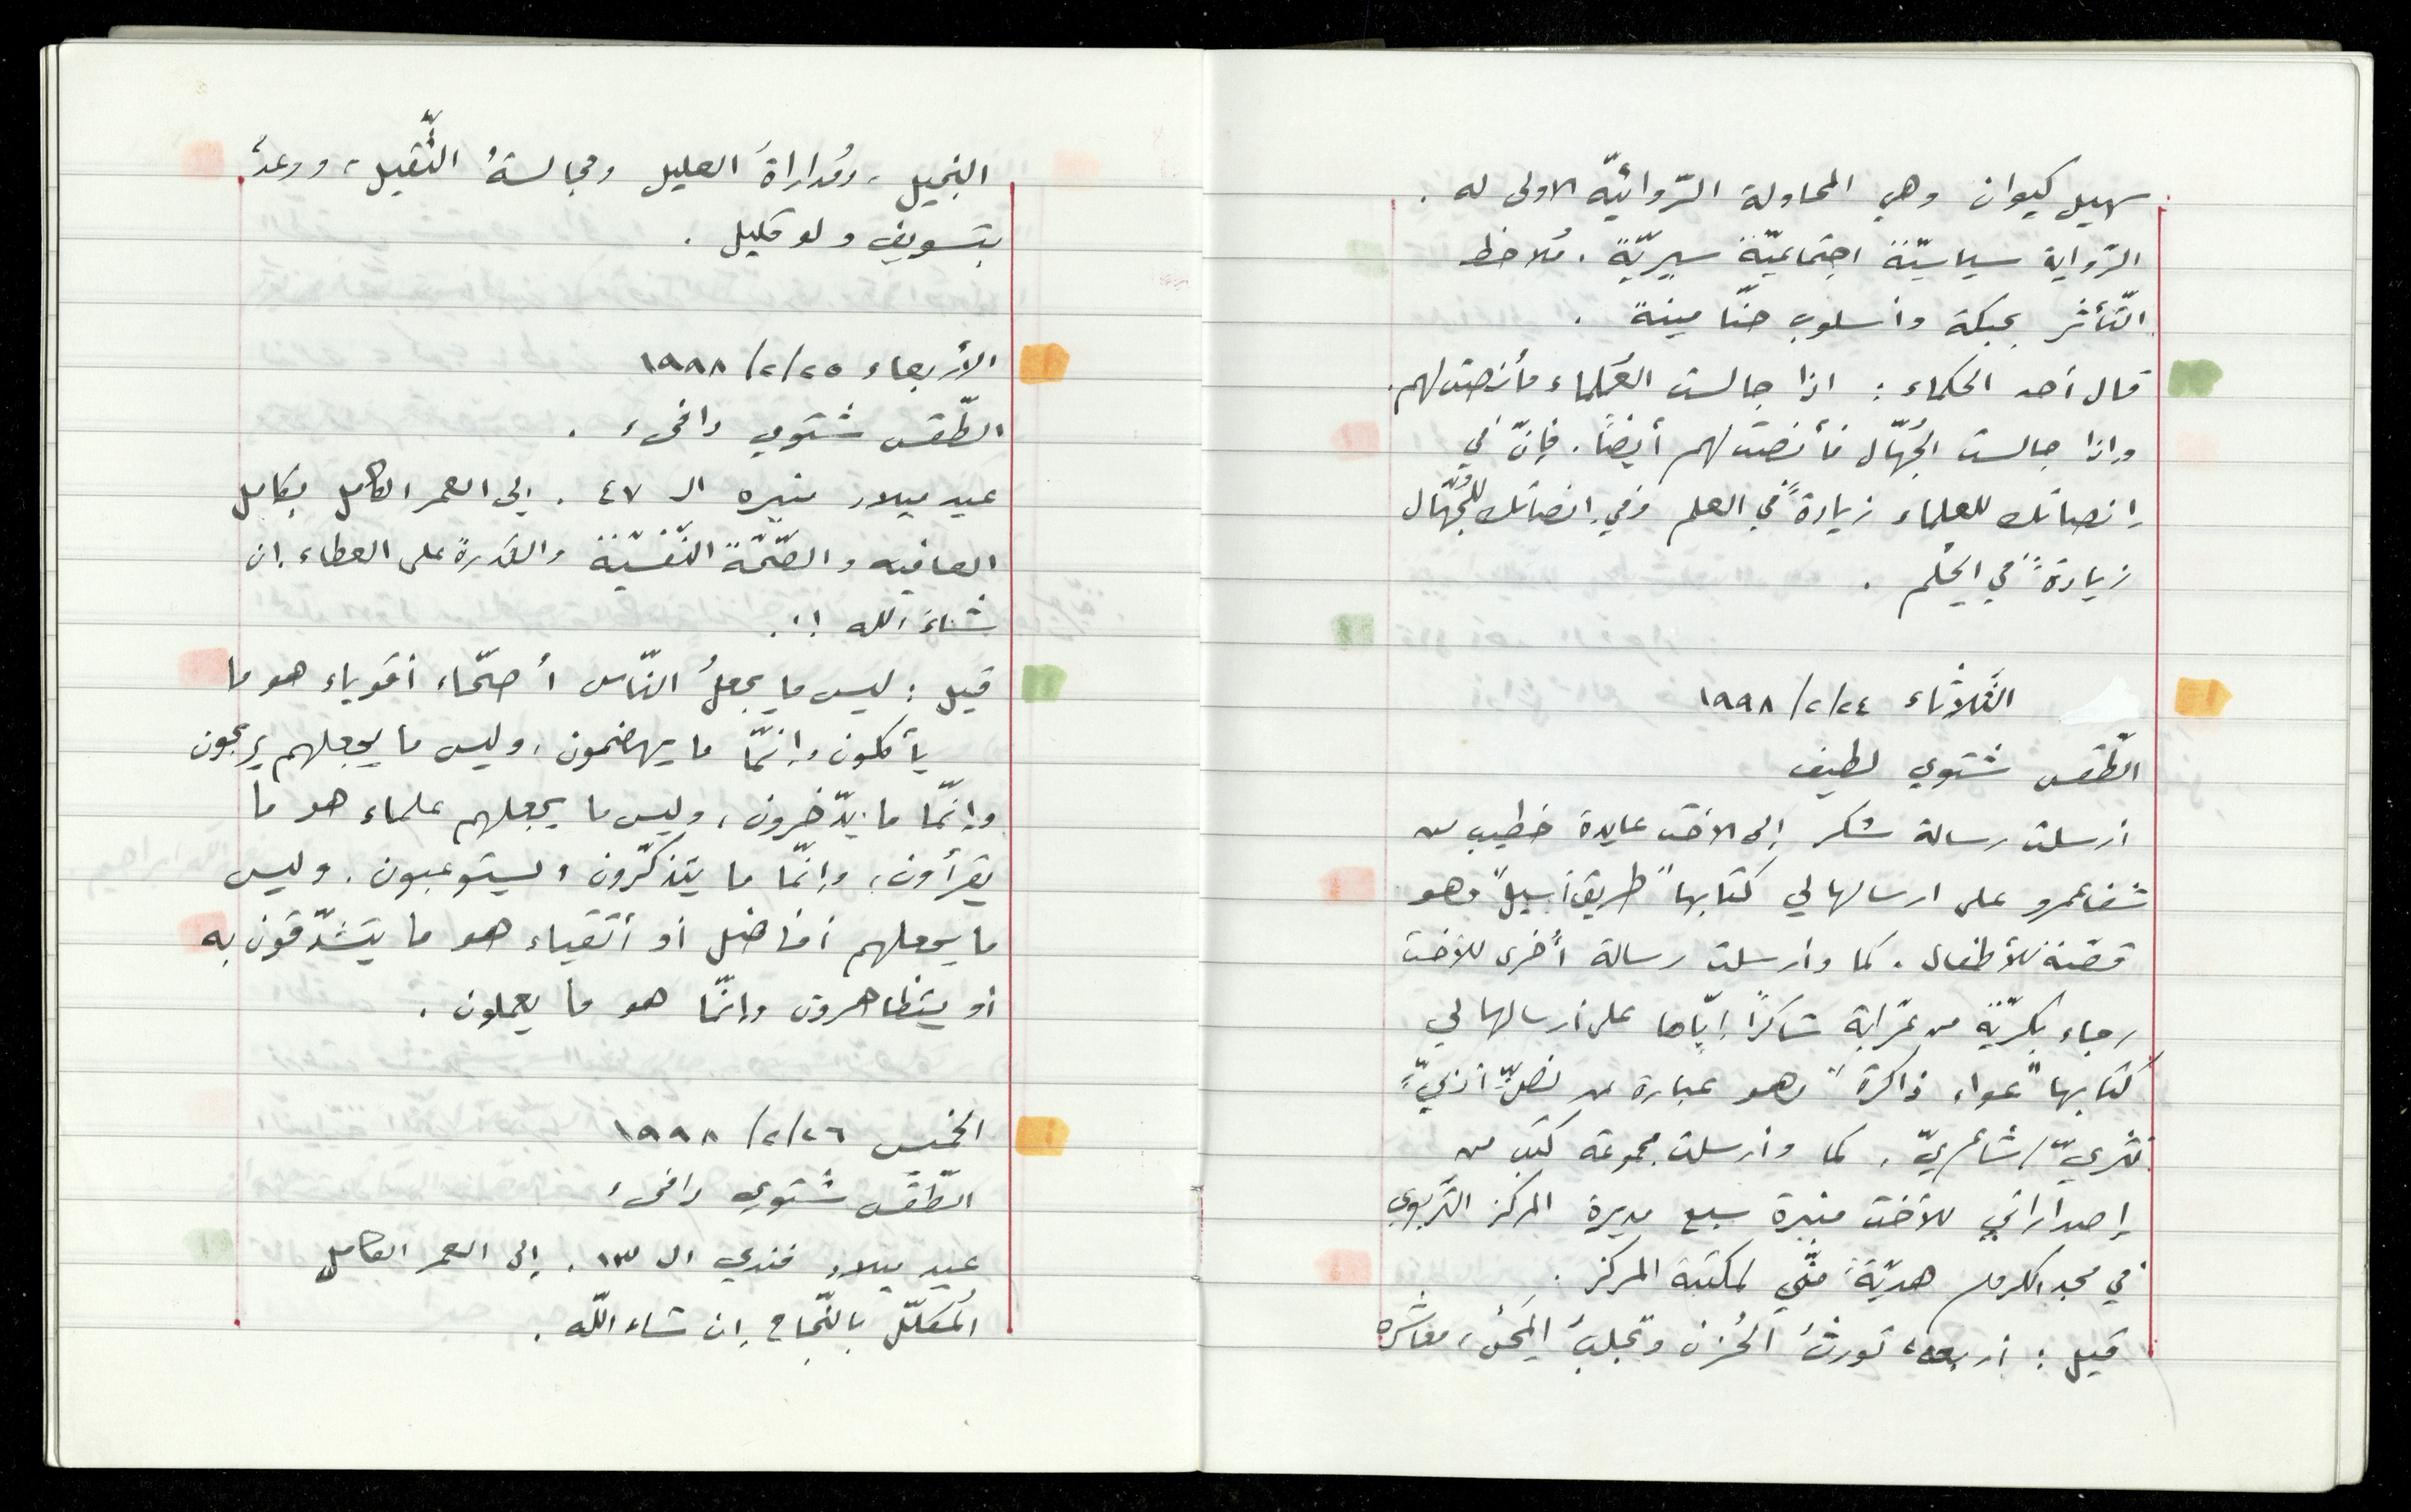 سهيل كيوان وهي المحاولة الرّوائيّة الاولى له .
الرّواية سياسيّة اجتماعيّة سيريّة . مُلاحظ
التّأثّر بحبكة وأسلوب حنّا مينة .
قال أحد الحكماء : اذا جالست العُلماء فأنصت لهم .
وإذا جالست الجُهّال فأنصت لهم أيضًا . فإنّ في
إنصاتك للعلماء زيادةً في العلم وفي إنصاتك للجُهّال
زيادةً في الحِلم .
الثّلاثاء ٢٤/٢/١٩٩٨
الطّقس شتوي لطيف
أرسلت رسالة شكر إلى الاخت عايدة خطيب من
شفاعمرو على ارسالها لي كتابها "طريق أسيل" وهو
قصّة للأطفال . كما وأرسلت رسالة أخرى للأخت
رجاء بكريّة من عرّابة شاكرًا إيّاها على ارسالها لي
كتابها "عواء ذاكرة" وهو عبارة عن نصٍّ أدبيٍّ
نثريّ/شاعريّ . كما وأرسلت مجموعة كتب من
إصداراتي للأخت منيرة سبع مديرة المركز التّربوي
في مجد الكروم هديّةً منّي لمكتبة المركز .
قيل : أربعة تورثُ الحُزن وتجلبُ المِحَن ، معاشرة
البخيل ، ومُداراةُ العليل ومجالسةُ الثّقيل ، ووعدٌ
بتسويف ولو قليل .
الأربعاء ٢٥/٢/١٩٩٨
الطّقس شتوي دافىء .
عيد ميلاد منيره الـ ٤٧ . إلى العمر الكامل بكامل
العافيه والصّحّة النّفسيّة والقدرة على العطاء إن
شاءَ الله !.
قيل : ليس ما يجعلُ النّاس أصحّاء أقوياء هو ما
يأكلون وإنّما ما يهضمون ، وليس ما يجعلهم يربحون
وإنّما ما يدّخرون ، وليس ما يجعلهم علماء هو ما
يقرأون ، وإنّما ما يتذكّرون ويستوعبون . وليس
ما يجعلهم أفاضل أو أتقياء هو ما يتشدّقون به
أو يتظاهرون وإنّما هو ما يعملون .
الخميس ٢٦/٢/١٩٩٨
الطّقس شتوي دافىء
عيد ميلاد فندي الـ ١٣ . إلى العمر الكامل
المُكلّل بالنّجاح إن شاء اللّه .